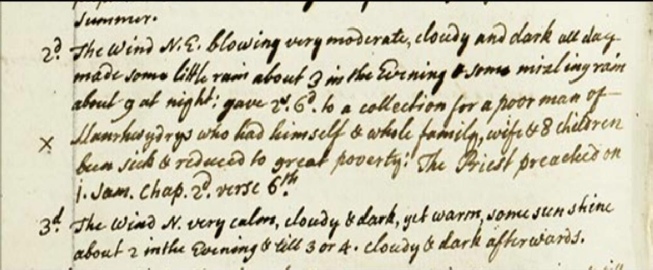 Summer.
2d The Wind N.E. blowing very moderate, cloudy and dark all day
made some little rain about 3 in the Evening & some mizling rain
about 9 at night; gave 2s. 6d. to a collection for a poor man of
x Llanrhwydrys who had himself & whole family, wife & 8 children
been sick & reduced to great poverty: The Priest preached on
1. Sam. Chap. 2d. verse 6th
3d The Wind N. very calm, cloudy & dark, yet warm, some sun shine
about 2 in the Evening & till 3 or 4. cloudy & dark afterwards.